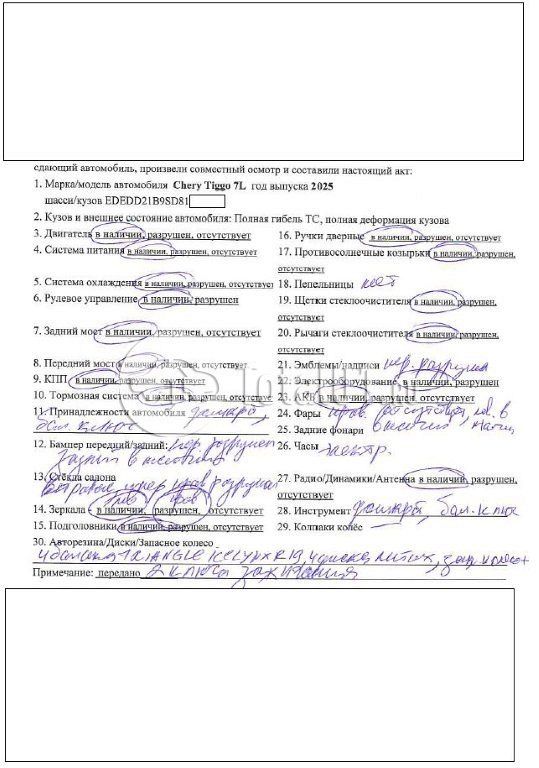 сдающий автомобиль, произвели совместный осмотр и составили настоящий акт:
1. Марка/модель автомобиля Chery Tiggo 7L год выпуска 2025
шасси/кузов EDEDD21B9SD81
2. Кузов и внешнее состояние автомобиля: Полная гибель ТС, полная деформация кузова
3. Двигатель в наличии, разрушен, отсутствует
4. Система питания в наличии, разрушен, отсутствует
5. Система охлаждения в наличии, разрушен, отсутствует
6. Рулевое управление в наличии, разрушен
7. Задний мост в наличии, разрушен, отсутствует
8. Передний мост в наличии, разрушен, отсутствует
9. КПП в наличии, разрушен, отсутствует
10. Тормозная система в наличии, разрушен, отсутствует
11. Принадлежности автомобиля домкрат,
бал. ключ
12. Бампер передний/задний: пер разрушен
задний в наличии
13. Стёкла салона
14. Зеркала в наличии, разрушен, отсутствует
лев прав
15. Подголовники в наличии, разрушен, отсутствует
16. Ручки дверные в наличии, разрушен, отсутствует
17. Противосолнечные козырьки в наличии, разрушен,
отсутствует
18. Пепельницы нет
19. Щетки стеклоочистителя в наличии, разрушен,
отсутствует
20. Рычаги стеклоочистителя в наличии, разрушен,
отсутствует
21. Эмблемы/надписи пер. разрушен
22. Электрооборудование в наличии, разрушен
23. АКБ в наличии, разрушен, отсутствует
24. Фары прав. отсутствует, лев. в
25. Задние фонари в наличии налич
26. Часы электр.
27. Радио/Динамики/Антенна в наличии, разрушен,
отсутствует
28. Инструмент домкрат, бал. ключ
29. Колпаки колёс
30. Авторезина/Диски/Запасное колесо
4 TRIANGLE R19, 4 диска литых, зап колесо
Примечание: передано 2 ключа зажигания